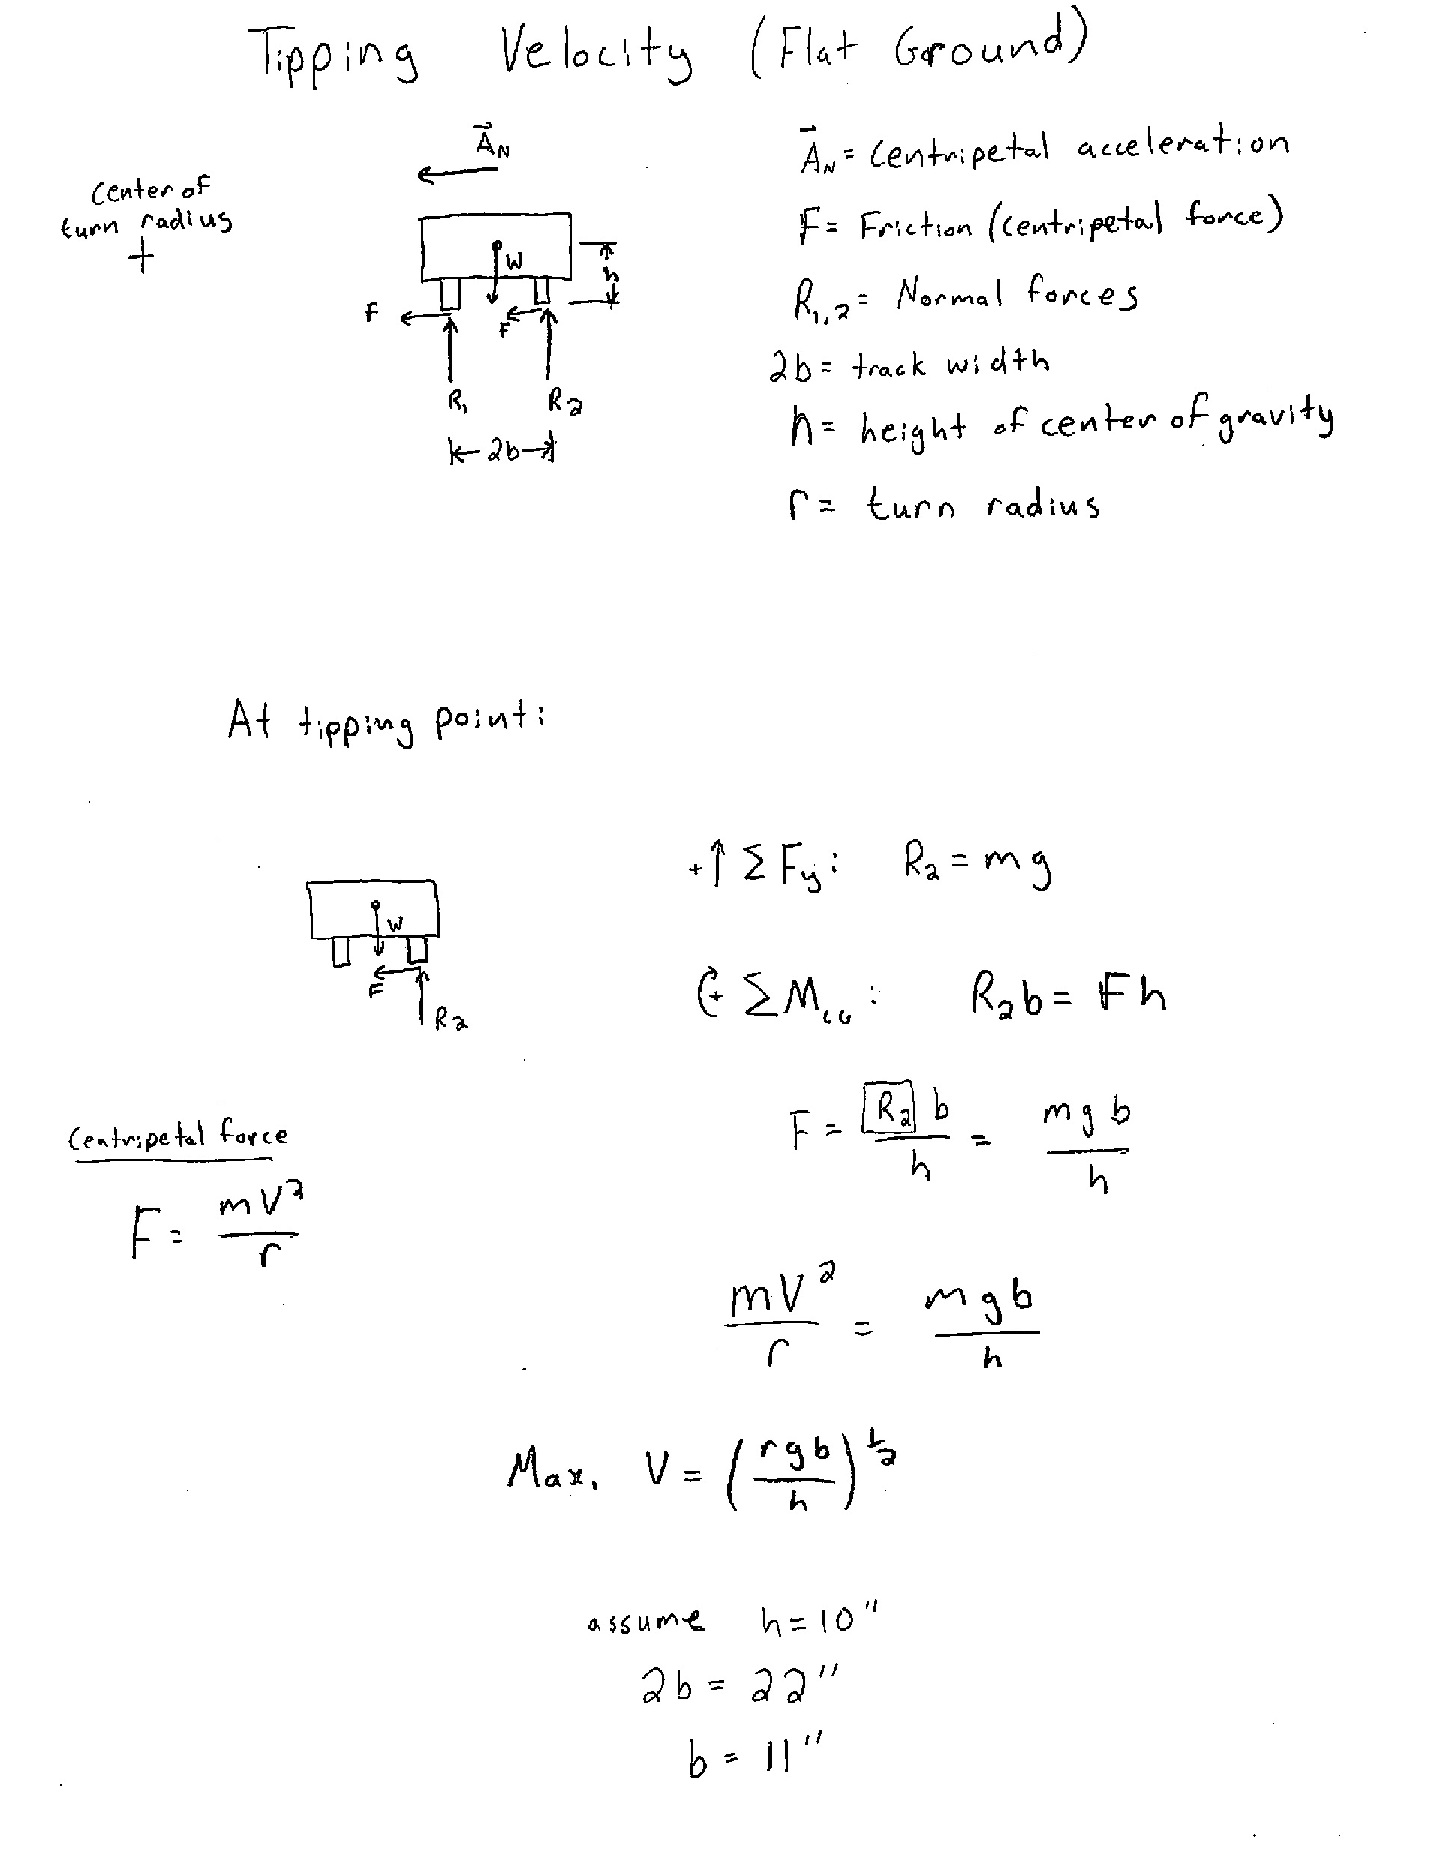 Tipping Velocity (Flat Ground)
A⃗N
Center of
turn radius
+
W
h
F
F
R1
R2
2b
A⃗N = Centripetal acceleration
F = Friction (centripetal force)
R1,2 = Normal forces
2b = track width
h = height of center of gravity
r = turn radius
At tipping point:
W
F
R2
+↑ΣFy: R2 = mg
+ ΣMCG: R2b = Fh
F = R2 b / h = mgb / h
Centripetal force
F = mV² / r
mV² / r = mgb / h
Max. V = (rgb / h)^½
assume h = 10"
2b = 22"
b = 11"